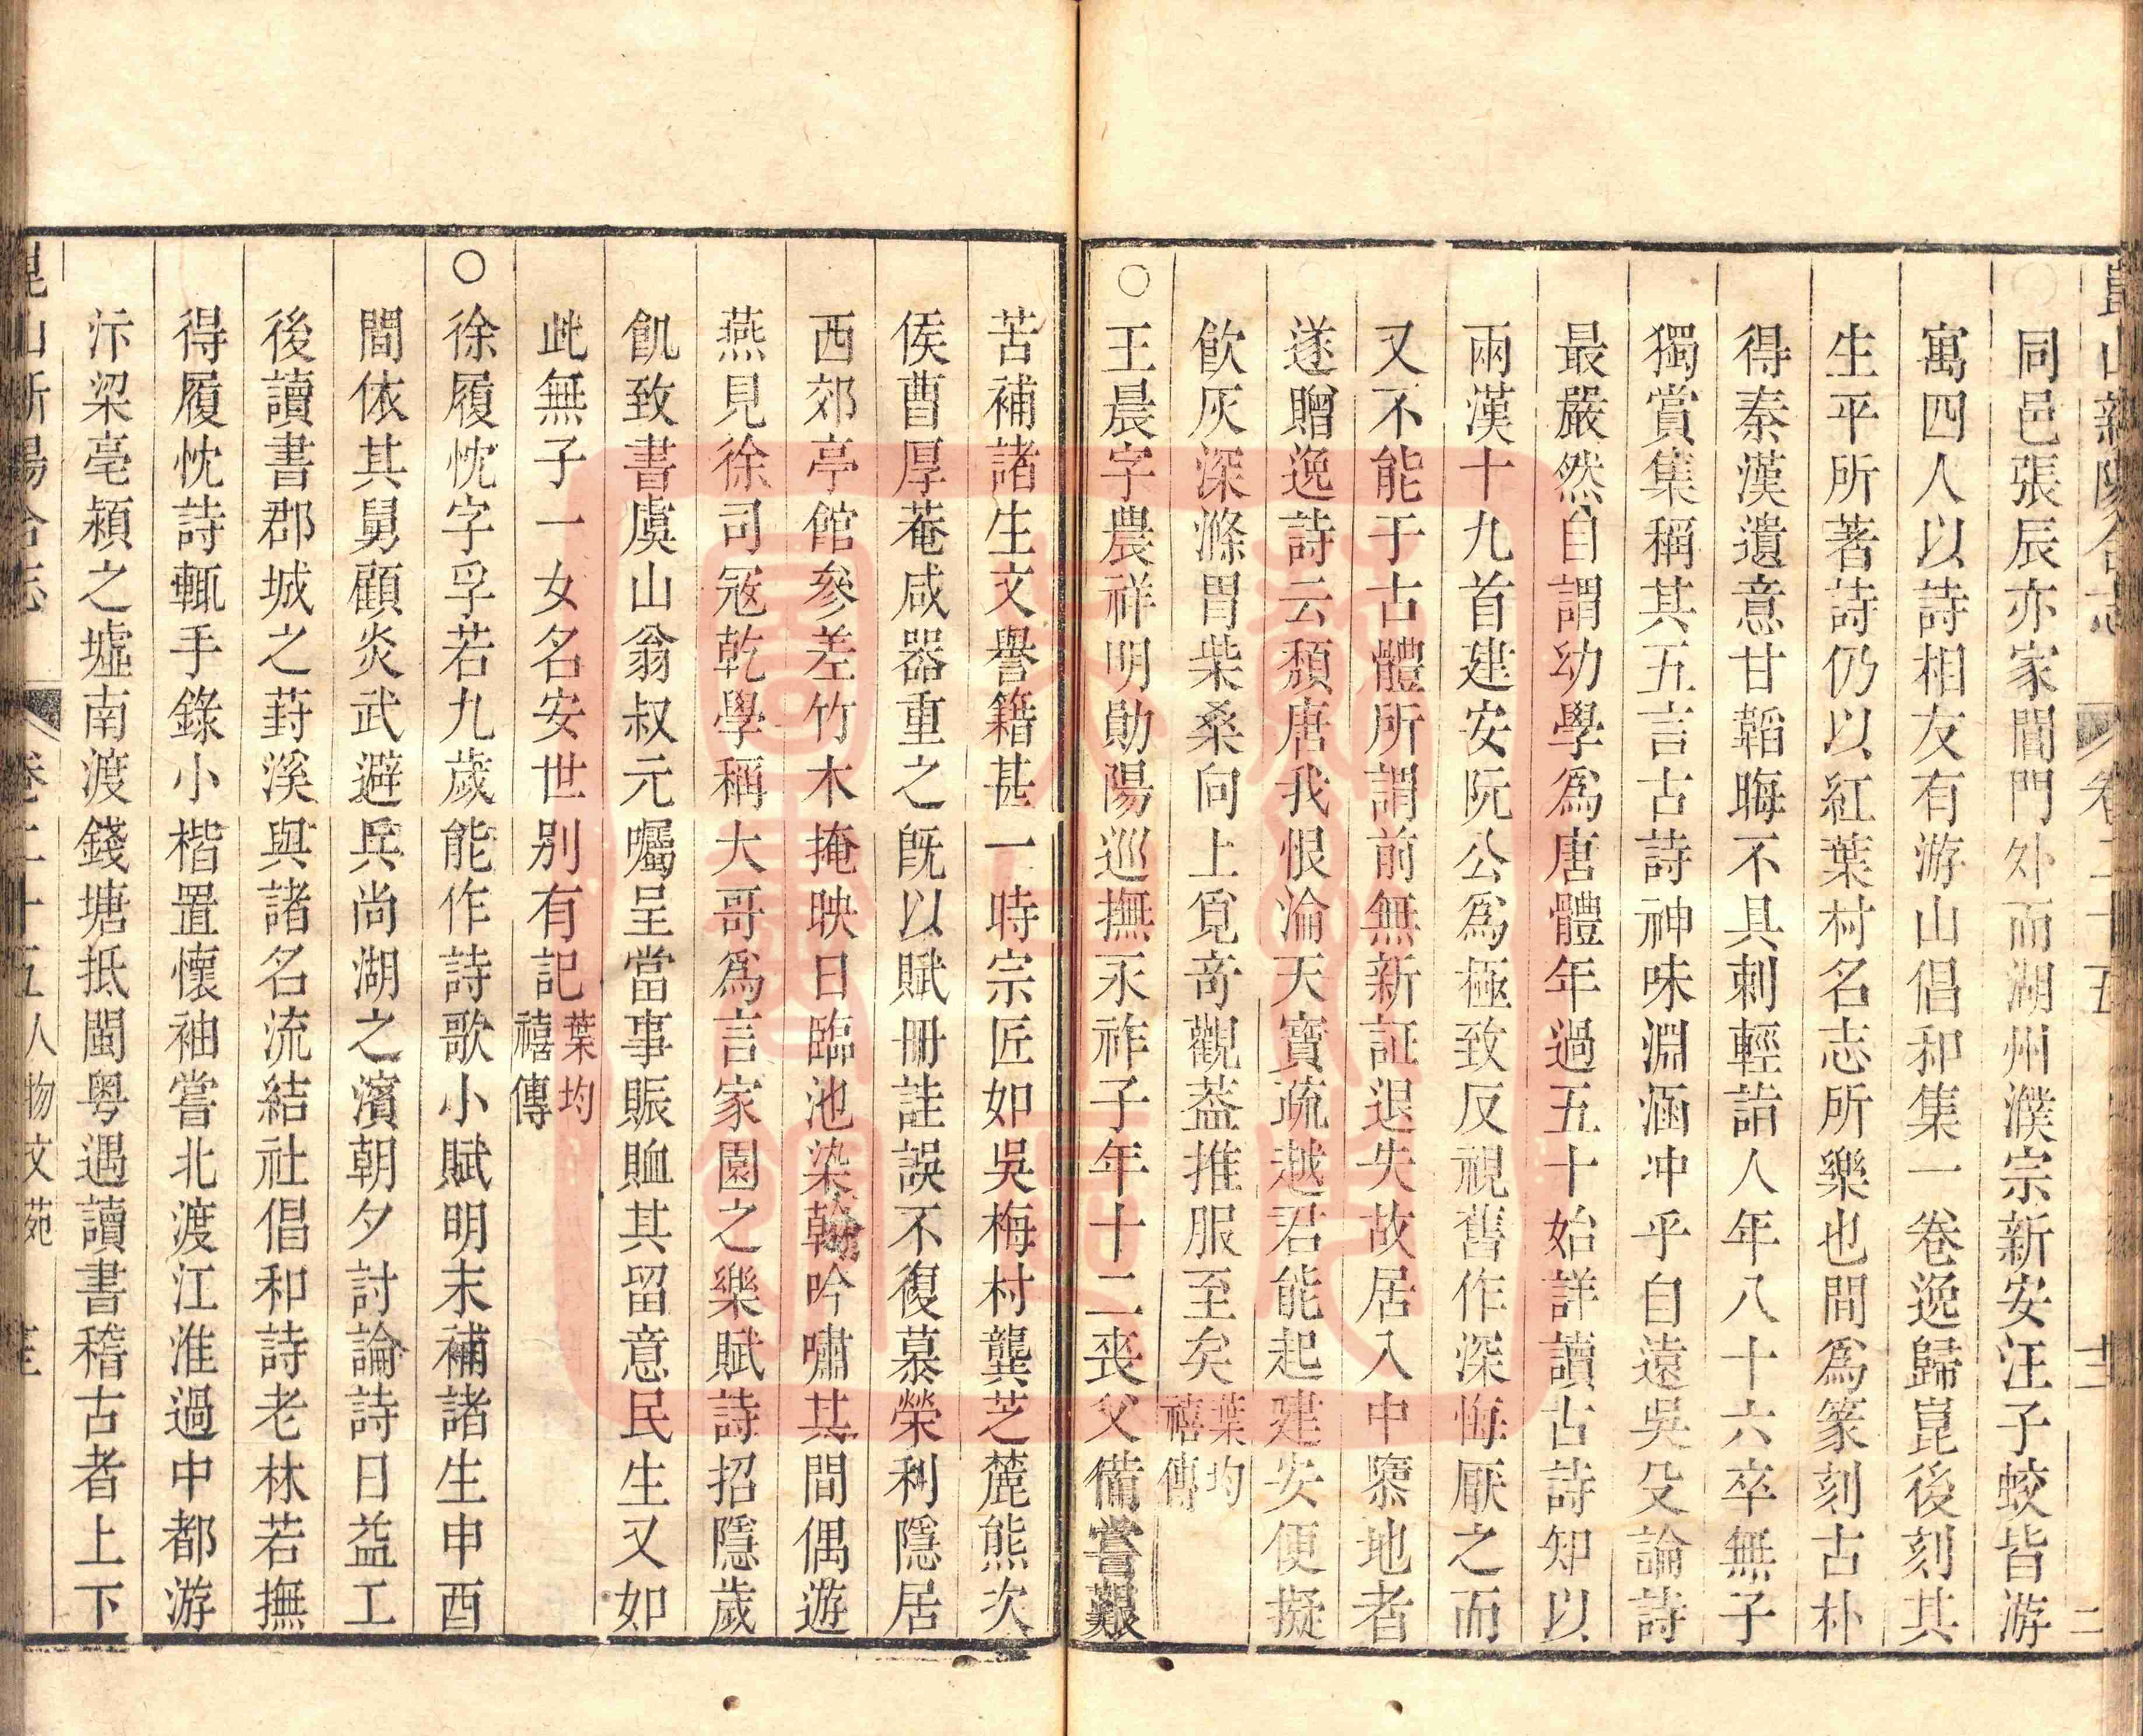 崑山新陽合志 卷二十五 二
同邑張辰亦家閶門外而湖州濮宗新安汪子蛟皆游
寓四人以詩相友有游山倡和集一卷逸歸崑後刻其
生平所著詩仍以紅葉村名志所樂也間爲篆刻古朴
得秦漢遺意甘韜晦不具刺輕詣人年八十六卒無子
獨賞集稱其五言古詩神味淵涵冲乎自遠吳殳論詩
最嚴然自謂幼學爲唐體年過五十始詳讀古詩知以
兩漢十九首建安阮公爲極致反視舊作深悔厭之而
又不能于古體所謂前無新証退失故居入中隳地者
遂贈逸詩云頽唐我恨淪天寶疏越君能起建安便擬
飲灰深滌胃柴桑向上覓奇觀葢推服至矣葉均禧傳
〇王晨字農祥明勛陽巡撫永祚子年十二喪父備嘗艱
苦補諸生文譽籍甚一時宗匠如吳梅村龔芝麓熊次
侯曹厚菴咸器重之旣以賦冊詿誤不復慕榮利隱居
西郊亭館參差竹木掩映日臨池染翰吟嘯其間偶遊
燕見徐司寇乾學稱大哥爲言家園之樂賦詩招隱歲
飢致書虞山翁叔元囑呈當事賑䘏其留意民生又如
此無子一女名安世別有記葉均禧傳
〇徐履忱字孚若九歲能作詩歌小賦明末補諸生申酉
間依其舅顧炎武避兵尚湖之濱朝夕討論詩日益工
後讀書郡城之葑溪與諸名流結社倡和詩老林若撫
得履忱詩輒手錄小楷置懷袖嘗北渡江淮過中都游
汴梁亳潁之墟南渡錢塘抵閩粵遇讀書稽古者上下
崑山新陽合志 卷二十五 人物文苑